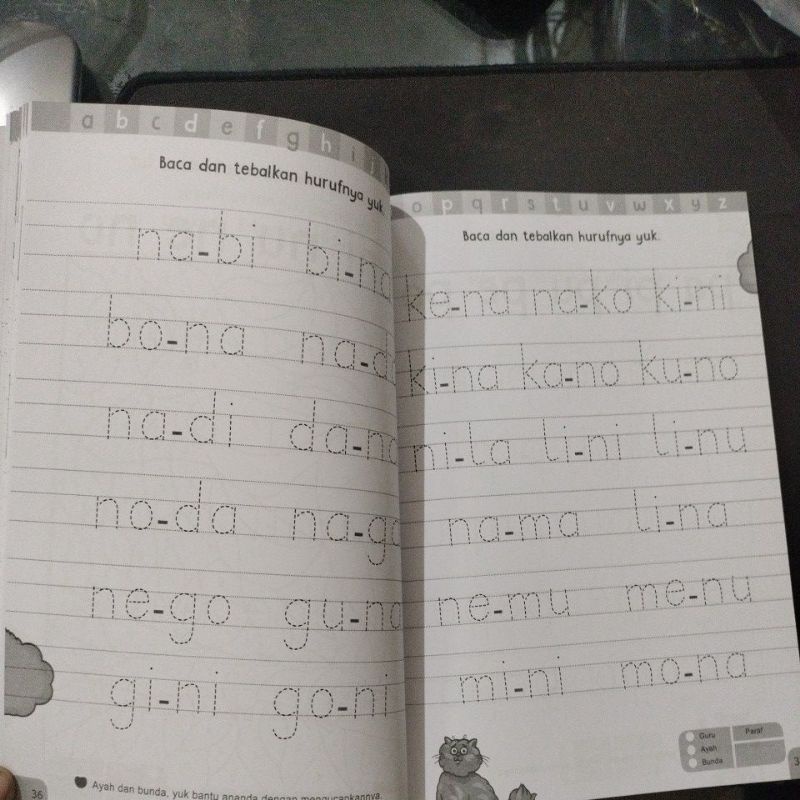 a b c d e f g h i j
Baca dan tebalkan hurufnya yuk
na-bi bi-na
bo-na na-d
na-di da-na
no-da na-ga
ne-go gu-na
gi-ni go-ni
Ayah dan bunda, yuk bantu ananda dengan mengucapkannya.
36
o p q r s t u v w x y z
Baca dan tebalkan hurufnya yuk.
ke-na na-ko ki-ni
ki-na ka-no ku-no
ni-la li-ni li-nu
na-ma li-na
ne-mu me-nu
mi-ni mo-na
Guru Paraf
Ayah
Bunda
3